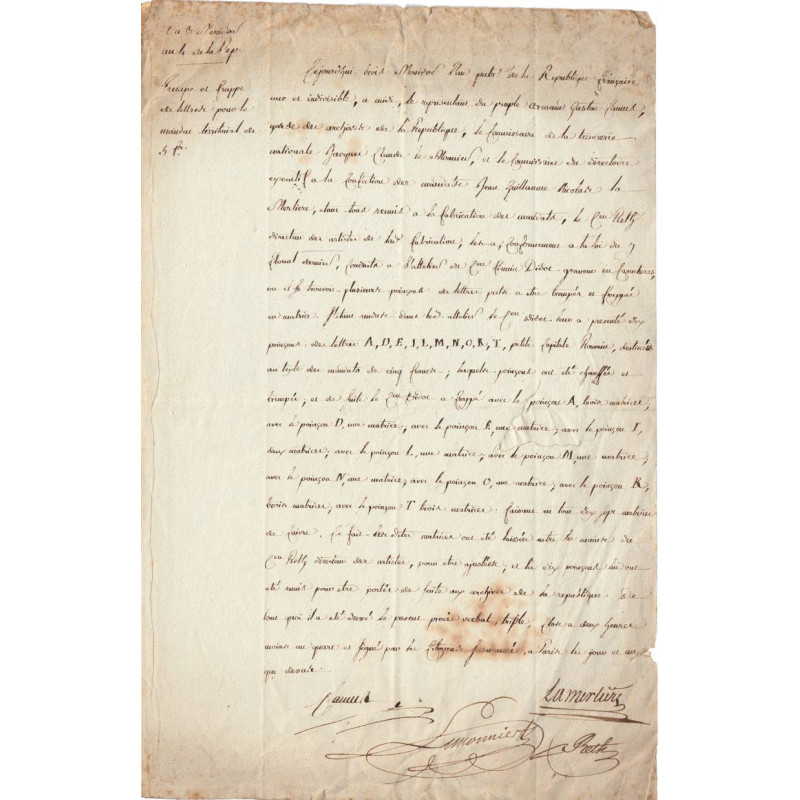 Du 3 Messidor
au 4 de la Rep.
Trempe et frappe
de lettres pour le
mandat territorial de
5 f.
Cejourd'hui trois Messidor l'an quatre de la République Française
une et indivisible, a midi, le representant du peuple Armand Gaston Camus,
garde des archives de la République, le Commissaire de la tresorerie
nationale Jacques Claude le Monnier, et le Commissaire du directoire
executif a la Confection des mandats Jean Guillaume Nicolas la
Merliere, etant tous reunis a la fabrication des mandats, le Cen Reth
directeur des artistes de lad. fabrication, les a, Conformement a la loi du 7
floreal dernier, Conduits a l'attelier du Cen Firmin Didot graveur en Caracteres,
ou il se trouvoit plusieurs poinçons de lettres prets a être trempés et frappés
en matrice. S'étant rendus dans led. attelier le Cen Didot leur a presenté dix
poinçons des lettres A, D, E, I, L, M, N, O, R, T, petite Capitale Romaine, destinés
au texte des mandats de cinq francs; lesquels poinçons ont été chauffés et
trempés; et de suite le Cen Didot a frappé avec le poinçon A, trois matrices,
avec le poinçon D, une matrice; avec le poinçon E, une matrice; avec le poinçon I,
deux matrices; avec le poinçon L, une matrice; avec le poinçon M, une matrice;
avec le poinçon N, une matrice; avec le poinçon O, une matrice; avec le poinçon R,
trois matrices; avec le poinçon T trois matrices: faisant en tout dix sept matrices
de Cuivre. Ce fait lesdites matrices ont été laissées entre les mains du
Cen Reth directeur des artistes, pour être ajustées; et les dix poinçons ont
été remis pour être portés de suite aux archives de la republique. De
tout quoi il a été dressé le present procès verbal, triple, Clos a deux heures
moins un quart et signé par les Citoyens susnommés, a Paris les jour et an
que dessus.
Camus
Lamerliere
Lemonnier
Reth